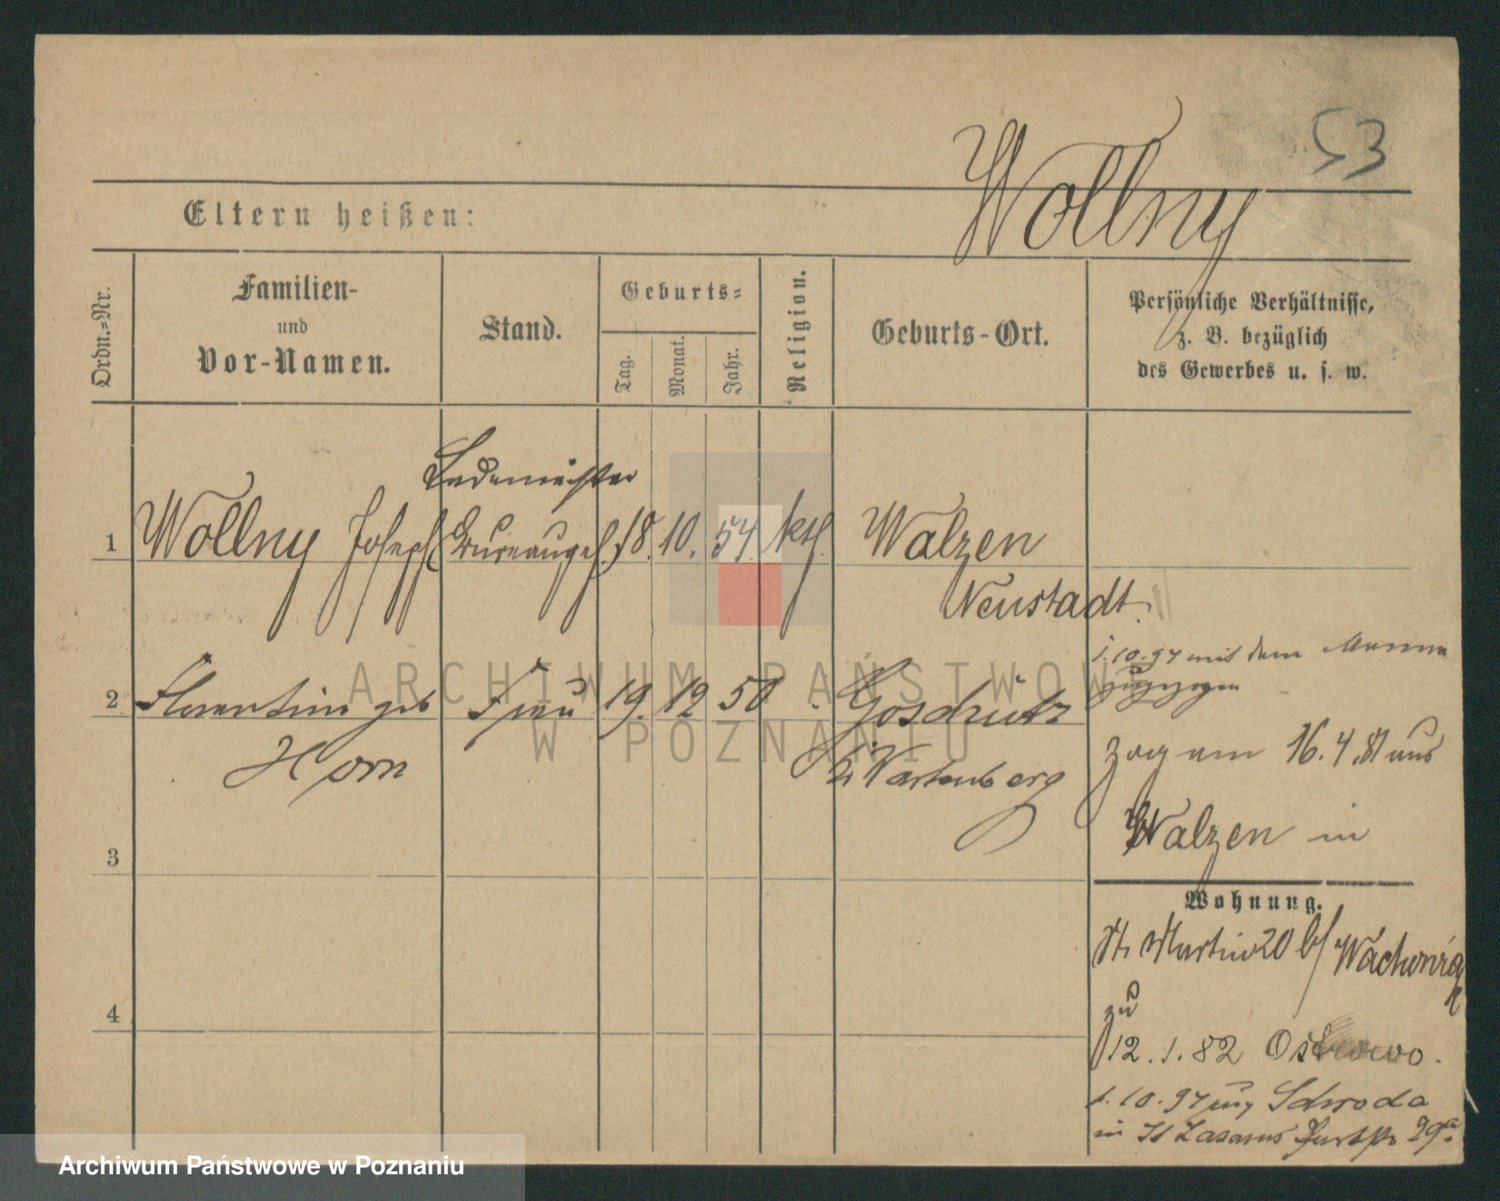 53
Wollny
Eltern heißen:
Ordn.=Nr.
Familien-
und
Vor-Namen.
Stand.
Geburts=
Tag.
Monat.
Jahr.
Religion.
Geburts-Ort.
Persönliche Verhältnisse,
z. B. bezüglich
des Gewerbes u. s. w.
Lademeister
1 Wollny Joseph (Bureaugeh.) 18. 10. 54. kth. Walzen
Neustadt.
1.10.97 mit dem Manne
zugezogen
2 Florentine geb Frau 19. 12 50 Goschütz
Horn
P. Wartenberg
zog am 16.4.81 aus
Walzen in
3
Wohnung.
St. Martin 20 b/
4
zu
12.1.82 Ostrowo.
1.10.97 aus Schroda
in St Lazarus 29a
ARCHIWUM PAŃSTWOWE
W POZNANIU
Archiwum Państwowe w Poznaniu